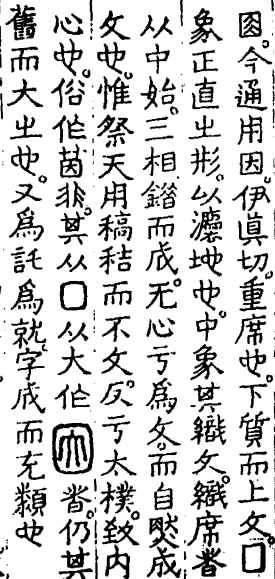 今通用因。伊眞切。重席也。下質而上文。囗
象正直㞢形。以灋地也。中象其織文。織席者
从中始。三相錯而成。无心亏爲文。而自然成
文也。惟祭天用稿秸而不文。反亏太樸。致内
心也。俗作茵非。其从囗从大作因者。仍其
舊而大㞢也。又爲託爲就。字成而充類也